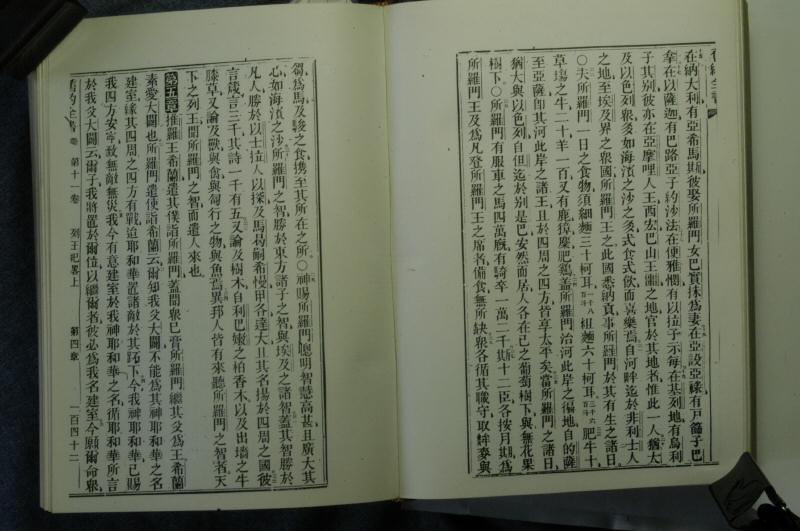 舊約全書
在納大利有亞希馬斯彼娶所羅門女巴實抹為妻在亞設亞祿有戶篩子巴
拿在以薩迦有巴路亞子約沙法在便雅憫有以拉子示每在基列地有烏利
子其別彼亦在亞摩哩人王西宏巴山王噩之地官於其地者惟此一人猶大
及以色列眾多如海濱之沙之多式食式飲而喜樂焉自河畔迄於非利士人
之地至埃及界之眾國所羅門王之此國悉納貢事所羅門於其有生之諸日
○夫所羅門一日之食物須細麵三十柯耳粗麵六十柯耳肥牛十
草場之牛二十羊一百又有鹿獐麋肥鷄蓋所羅門治河此岸之徧地自的薩
至亞薩即其河此岸之諸王且於四周之四方皆享太平矣當所羅門之諸日
猶大與以色列自但迄於別是巴安然而居人各在己之葡萄樹下與無花果
樹下○所羅門有服車之馬四萬廐有騎卒一萬二千其十二臣各按月期為
所羅門王及為凡登所羅門王之席者備食無所缺眾各循其職守取麰麥與
芻為馬及駿之食携至其所在之所○神賜所羅門聰明智慧高甚且廣大其
心如海濱之沙所羅門之智勝於東方諸子之智與埃及之諸智蓋其智勝於
凡人勝於以士拉人以探及馬曷嗣希慢甲各達大且其名揚於四周之國彼
言箴言三千其詩一千有五又論及樹木自利巴嫩之柏香木以及出墻之牛
膝草又論及獸與禽與匍行之物與魚焉異邦人皆有來聽所羅門之智者天
下之列王聞所羅門之智而遣人來也
第五章推羅王希蘭遣其僕詣所羅門蓋聞眾已膏所羅門繼其父為王希蘭
素愛大闢也所羅門遣使詣希蘭云爾知我父大闢不能為其神耶和華之名
建室緣其四周之四方有戰迨耶和華置諸敵於其跖下今我神耶和華已賜
我四方安寧敉無敵無災我今有意建室於我神耶和華之名循耶和華所言
於我父大闢云爾子我將置於爾位以繼爾者彼必為我名建室今願爾命眾
舊約全書 卷 第十一卷 列王紀畧上 第四章 一百四十二